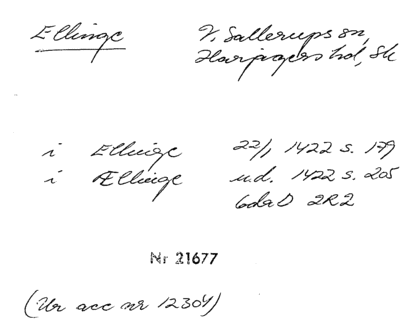 Ellinge V. Sallerups sn,
Harjagers hd, Sk
i Ellinge 22/1 1422 s. 179
i Ællinge u.d. 1422 s. 205
6da D 2R2
Nr 21677
(Ur acc nr 12304)